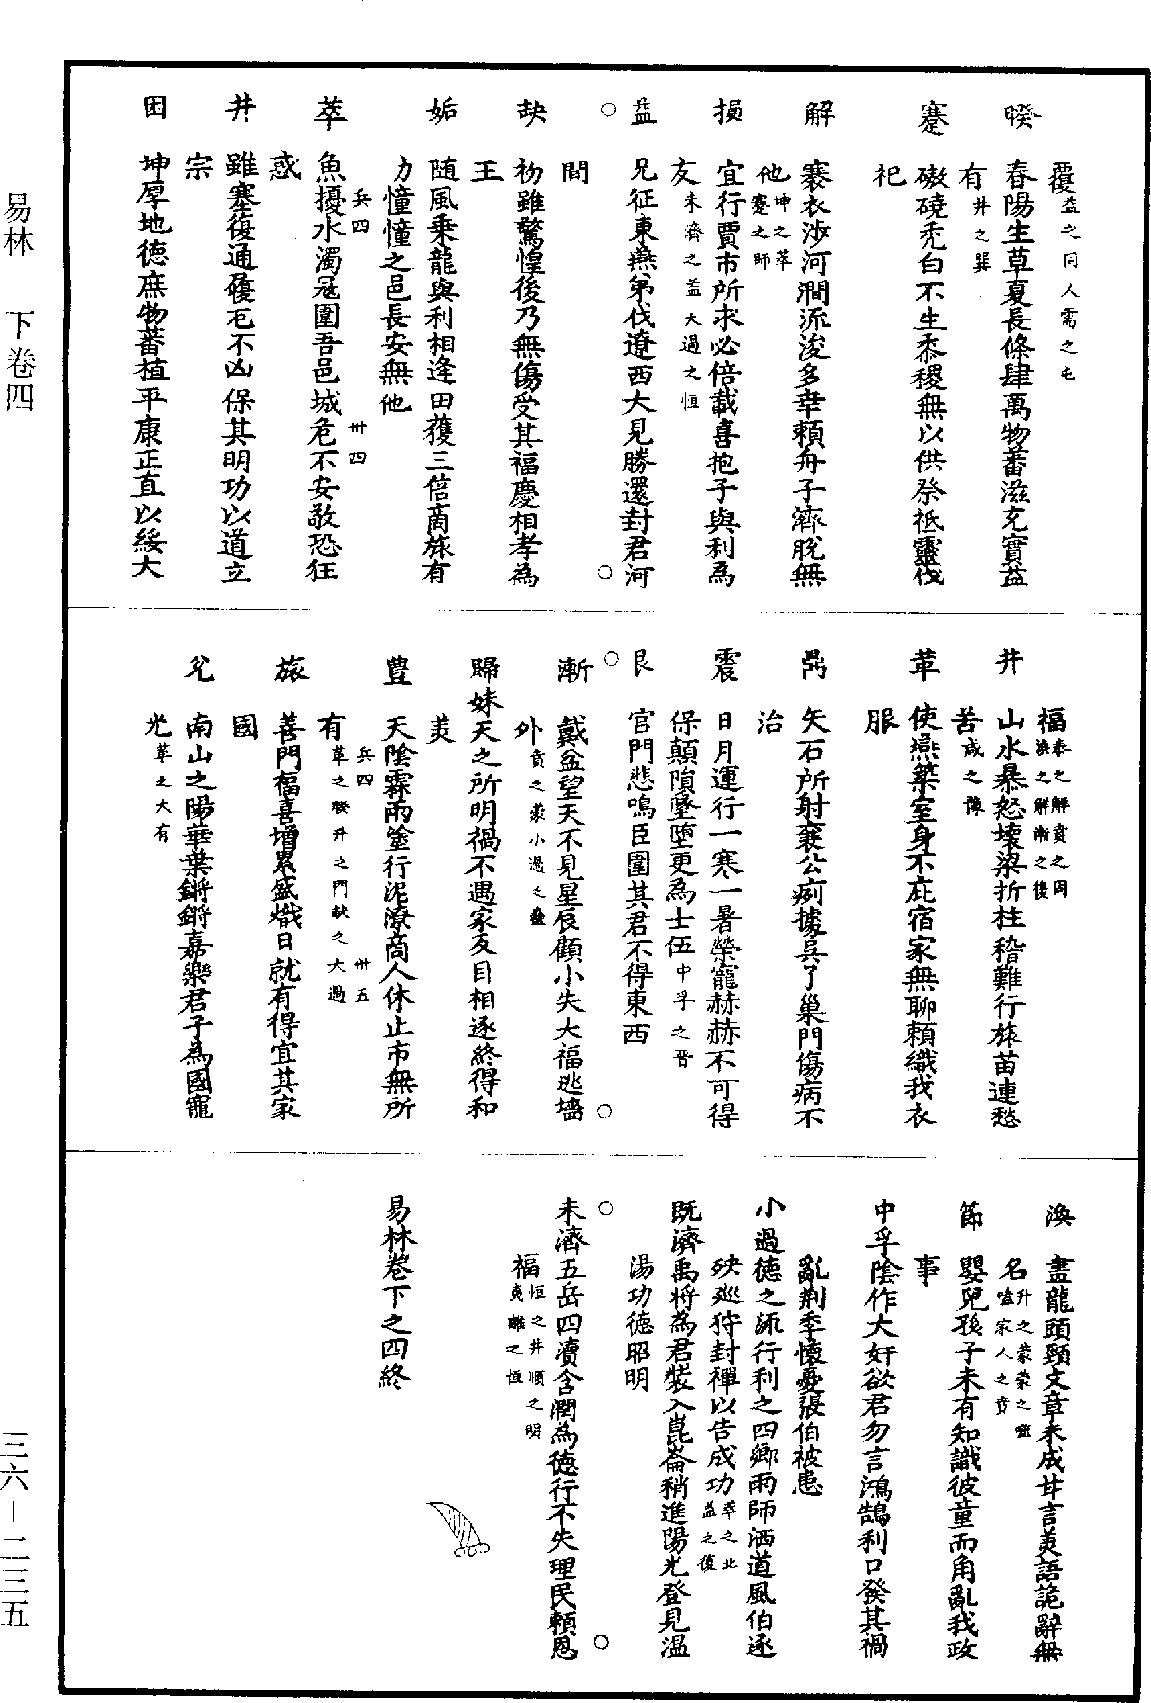 覆益之同人需之屯
睽 春陽生草夏長條肆萬物蕃滋充實益
有井之巽
蹇 磝磽禿白不生黍稷無以供祭祗靈伐
祀
解 褰衣涉河澗流浚多幸賴舟子濟脫無
他坤之萃蹇之師
損 宜行賈市所求必倍載喜抱子與利為
友未濟之益大過之恒
益 兄征東燕弟伐遼西大見勝還封君河
間
夬 初雖驚惶後乃無傷受其福慶相孝為
王
姤 随風乗龍與利相逢田獲三倍商旅有
功憧憧之邑長安無他
兵四 卅四
萃 魚擾水濁冦圍吾邑城危不安敬恐狂
惑
井 雖塞復通履危不凶保其明功以道立
宗
困 坤厚地德庶物蕃植平康正直以綏大
福泰之解賁之同渙之解漸之復
井 山水暴怒壊梁折柱稽難行旅苗連愁
苦咸之豫
革 使燕築室身不庇宿家無聊賴織我衣
服
鼎 矢石所射襄公痢據兵了巢門傷病不
治
震 日月運行一寒一暑榮寵赫赫不可得
保顛隕墜堕更為士伍中孚之晉
艮 官門悲鳴臣圍其君不得東西
漸 戴盆望天不見星辰顧小失大福逃墻
外賁之蒙小過之蠱
歸妹天之所明禍不遇家反目相逐終得和
美
兵四 卅五
豊 天隂霖雨塗行泥潦商人休止市無所
有革之睽井之鬥缺之大過
旅 善門福喜增累盛熾日就有得宜其家
國
兊 南山之陽華葉鏘鏘嘉樂君子為國寵
光革之大有
渙 畫龍頭頸文章未成甘言美語詭辭無
名升之蒙蒙之噬嗑家人之賁
節 嬰兒孩子未有知識彼童而角亂我政
事
中孚隂作大奸欲君勿言鴻鵠利口發其禍
亂荆季懷憂張伯被患
小過德之流行利之四鄉雨師洒道風伯逐
殃巡狩封禪以告成功萃之比益之復
既濟禹將為君裝入崑崙稍進陽光登見温
湯功德昭明
未濟五岳四瀆含潤為德行不失理民賴恩
福恒之井順之明夷離之恒
易林卷下之四終
易林 下卷四
三六－二三五